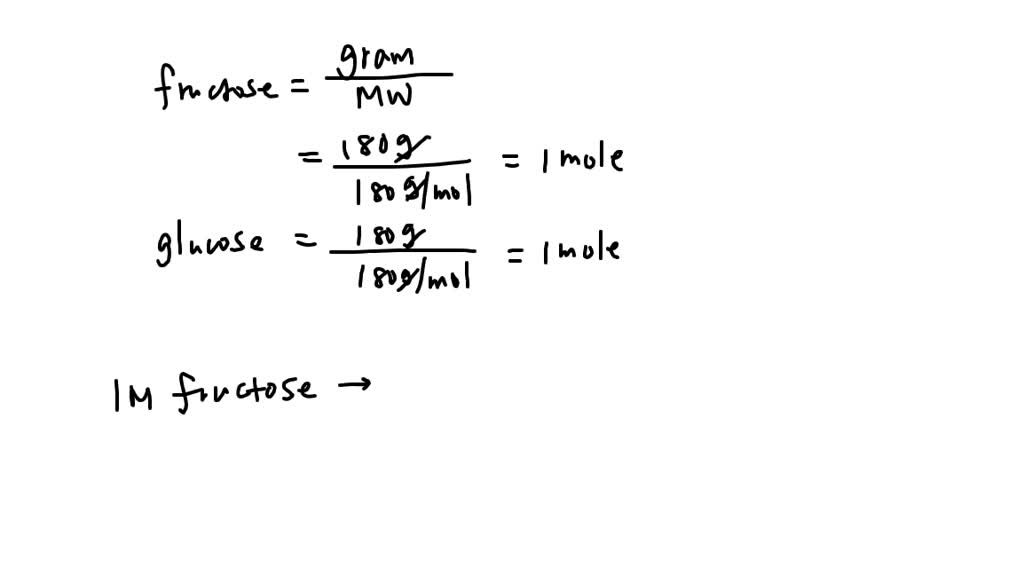 fructose = gram / MW
= 180g / 180g/mol = 1 mole
glucose = 180g / 180g/mol = 1 mole
1M fructose →